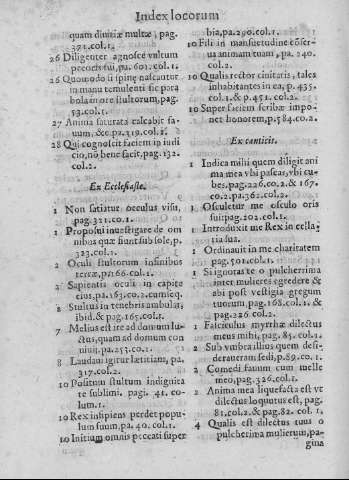 Index locorum
quam diuitiæ multæ, pag.
391.col.1.
26 Diligenter agnosce vultum
pecoris tui, pa. 601. col.1.
26 Quomodo si spinę nascantur
in manu temulenti sic para
bola in ore stultorum, pag.
53.col.1.
27 Anima saturata calcabit fa-
uum, &c. pa.319.col.1.
28 Qui cognoscit faciem in iudi
cio, nō bene facit, pag.132.
col.2.
Ex Ecclesiaste.
1 Non satiatur occulus visu,
pag.321.co.1.
1 Proposui inuestigare de om
nibus quæ fiunt sub sole, p.
323.col.1.
2 Oculi stultorum infinibus
terræ, pa.166.col.1.
2 Sapientis oculi in capite
eius, pa.163.co.2.cum seq.
2 Stultus in tenebris ambulat,
ibid.& pag.165.col.1.
7 Melius est ire ad domum lu-
ctus, quam ad domum con
uiuij. pa.253.co.1.
8 Laudaui igitur lætitiam, pa.
317.col.2.
10 Positum stultum in dignita
te sublimi. pagi. 41. co-
lum.1.
10 Rex insipiens perdet popu-
lum suum, pa. 40. col.1.
10 Initium omnis peccati super
bia, pa.290.col.1.
10 Fili in mansuetudine cōser-
ua animam tuam, pa. 240.
col.2.
10 Qualis rector ciuitatis, tales
inhabitantes in ea, p. 435.
col.1.& p.451. col.2.
10 Super faciem scribæ impo-
net honorem, p.584.co.2.
Ex canticis.
1 Indica mihi quem diligit ani
ma mea vbi pascas, vbi cu-
bes. pag.226.co.2. & 167.
co.2.pa.362.col.2.
1 Osculetur me osculo oris
sui pag.202.col.1.
1 Introduxit me Rex in cella-
ria sua.
1 Ordinauit in me charitatem
pag.501.col.1.
1 Si ignoras te o pulcherrima
inter mulieres egredere &
abi post vestigia gregum
tuorum, pag.168.col.1. &
pag.226 col.2.
1 Fasciculus myrrhæ dilectus
meus mihi, pag. 85. col.1.
2 Sub vmbra illius quem desi-
deraueram sedi, p.89.co.1.
2 Comedi fauum cum melle
meo, pag.326.col.1.
2 Anima mea liquefacta est vt
dilectus loquutus est, pag.
81.col.2.& pag.82. col. 1.
4 Qualis est dilectus tuus o
pulcherima mulierum, pa-
gina